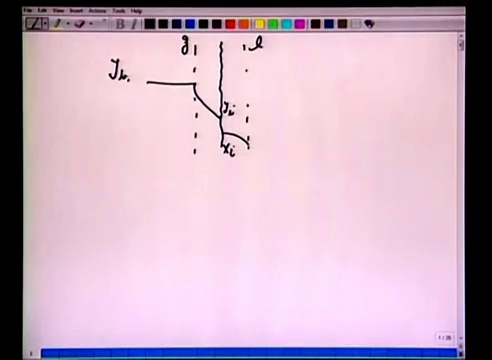 File Edit View Insert Actions Tools Help
g l
y_b
y_i
x_i
1 / 26